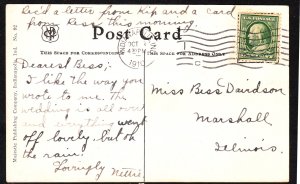 Rec'd a letter from Kip and a card
from Ress this morning.
Post Card
THIS SPACE FOR CORRESPONDENCE
THIS SPACE FOR ADDRESS ONLY
Majestic Publishing Company, Indianapolis, Ind. No. 82
OCT
1911
Dearest Bess;
I like the way you
wrote to me. The
wedding is all over
everything went
off lovely, but oh
the rain.
Lovingly Nettie.
Miss Bess Davidson
Marshall
Illinois.